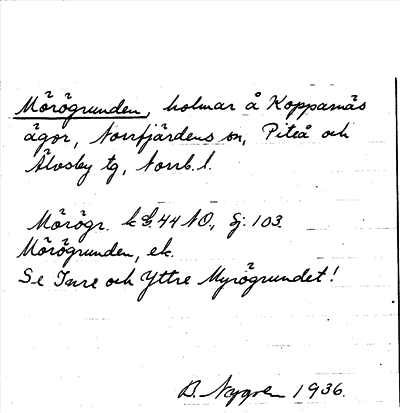 Mörögrunden, holmar å Kopparnäs
ägor, Norrfjärdens sn, Piteå och
Älvsby tg, Norrb. l.
Mörögr. k G. 44 NO, Sj. 103.
Mörögrunden, ek.
Se Inre och Yttre Myrögrundet!
B. Nygren 1936.